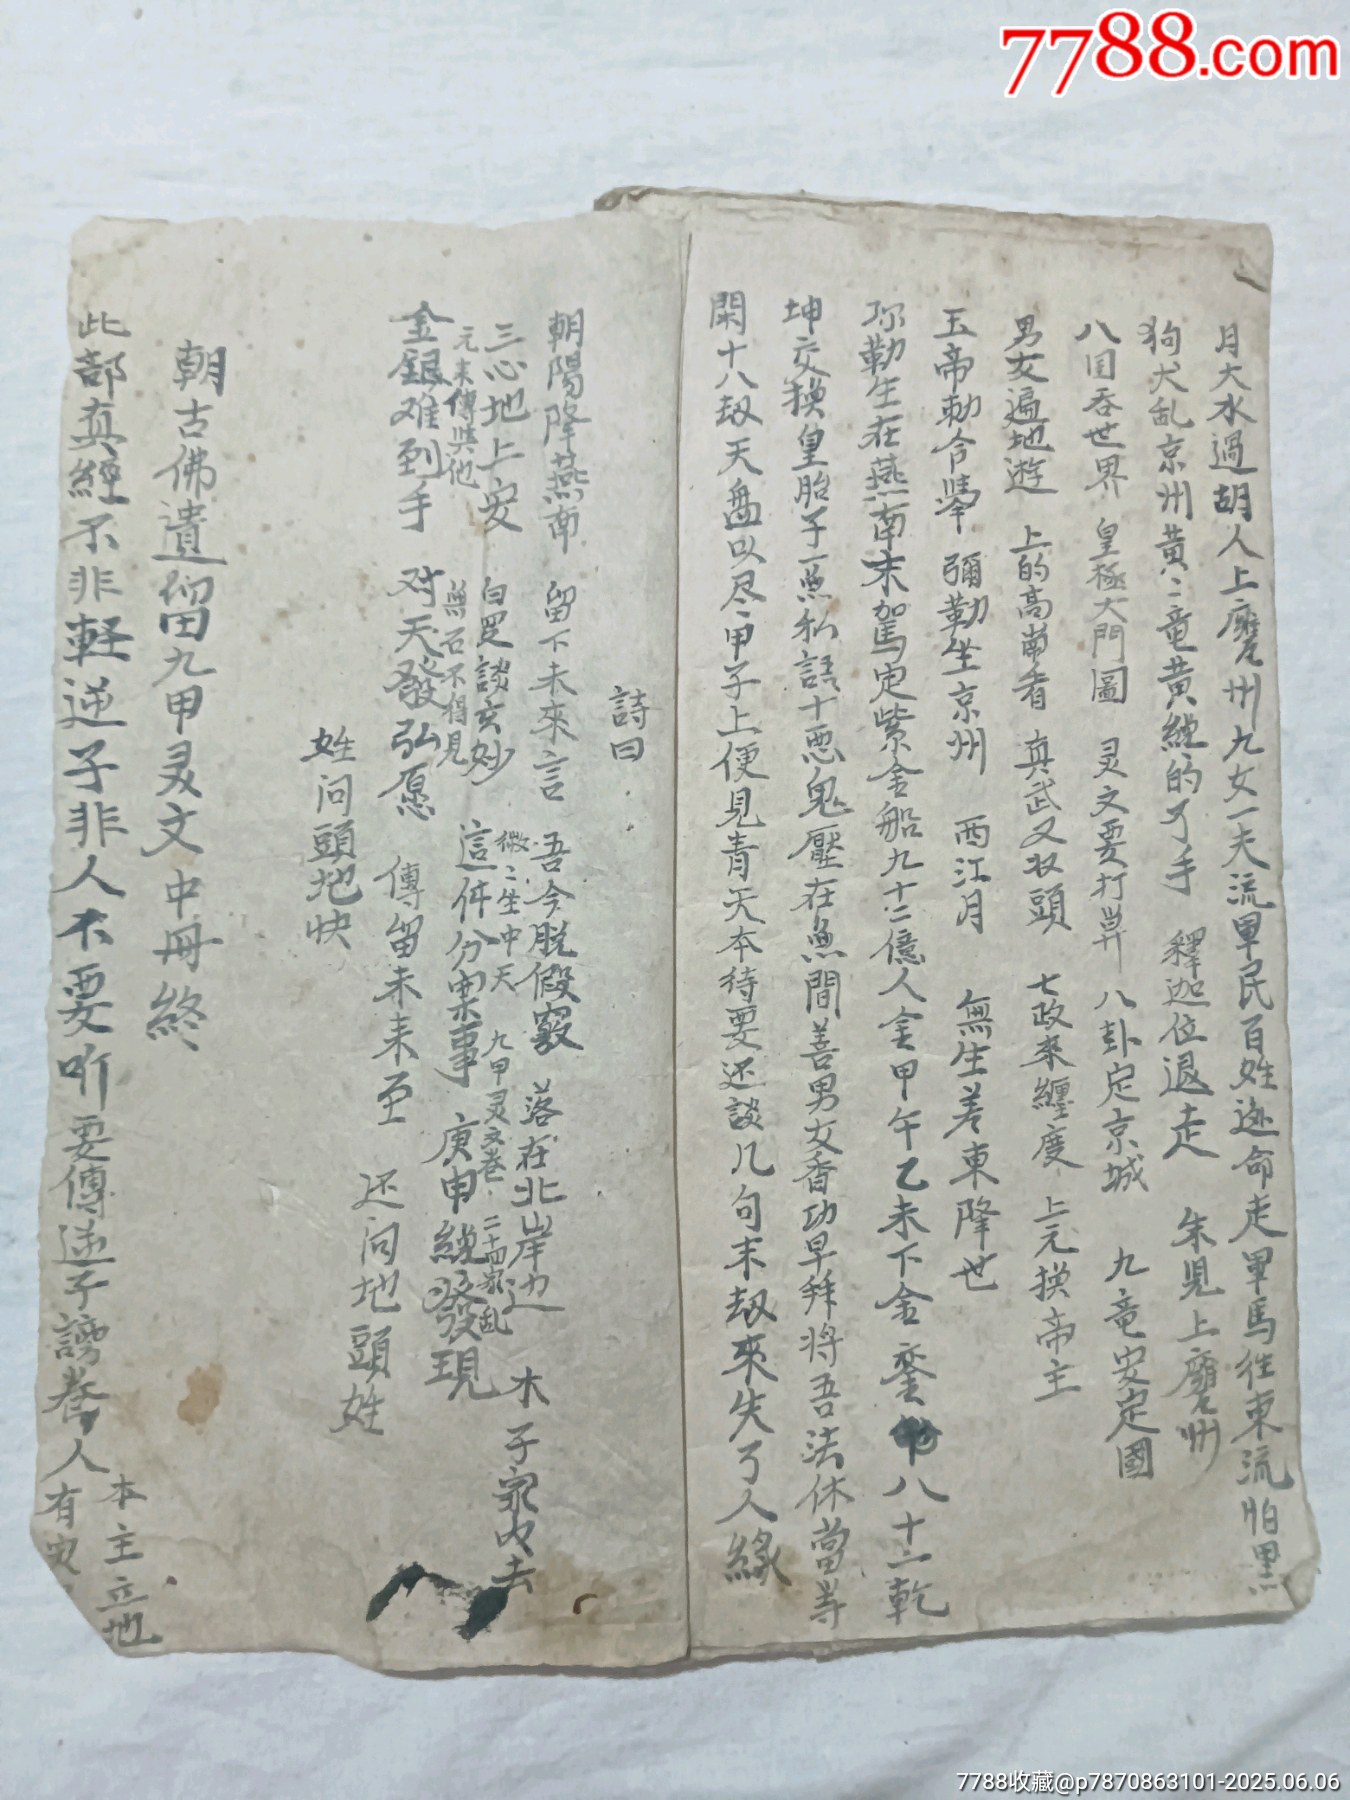 7788.com
月大水過胡人上魔州九女一夫流軍民百姓逃命走軍馬往東流怕黑
狗犬乱京州黄〻竜黄緾的了手 釋迦位退走 朱児上魔州
八国吞世界 皇極大門圖 灵文要打開 八卦定京城 九竜安定國
男女遍地遊 上的高南看 真武又収頭 七政來纏度 上元换帝主
玉帝勅合攀 彌勒坐京州 西江月 無生差東降世
弥勒生在燕南末駕定紫金船九十二億人金甲午乙未下金鑾 八十一乾
坤交換皇胎子一魚私語十惡鬼壓在魚間善男女香功早拜將吾法休當等
閑十八刼天盘以尽甲子上便見青天本待要还談几句末刼來失了人緣
詩曰
朝陽降燕南 留下未來言 吾今脱假竅 落在北岸边 木子家内去
三心地上安 白 談玄妙 微〻生中天 九甲灵文卷 二十四家乱
元末傳与他 無石不得見 這件分 事 庚申緾發現
金銀难到手 对天發弘愿 傳留未来至 还问地頭姓
姓问頭地快
朝古佛遺留九甲灵文中冊終
此部真經不非軽逆子非人不要听要傳逆子謗卷人有灾
本主立地
7788收藏@p7870863101-2025.06.06